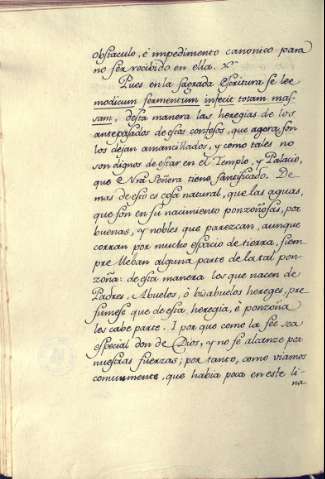 obstaculo, é impedimento canonico para
no ser recibido en ella. Xº
Pues en la sagrada Escritura se lee
modicum fermentum infecit totam mas-
sam, desta manera las heregias de los
antepasados de estos confesos, que agora son
los dejan amancillados, y como tales no
son dignos de estar en el Templo, y Palacio,
que Nrã Señora tiene santificado. De
mas desto es cosa natural, que las aguas,
que son en su nacimiento ponzoñosas, por
buenas, y nobles que parezcan, aunque
corran por mucho espacio de tierra, siem
pre lleban alguna parte de la tal pon
zoña: de esta manera los que nacen de
Padres, Abuelos, ó bisabuelos hereges, pre
sumese que de esta heregia, é ponzoña
les cabe parte. I por que como la feè sea
especial don de Dios, y no se alcanze por
nuestras fuerzas; por tanto, como viamos
comunmente, que habia poca en este li
na